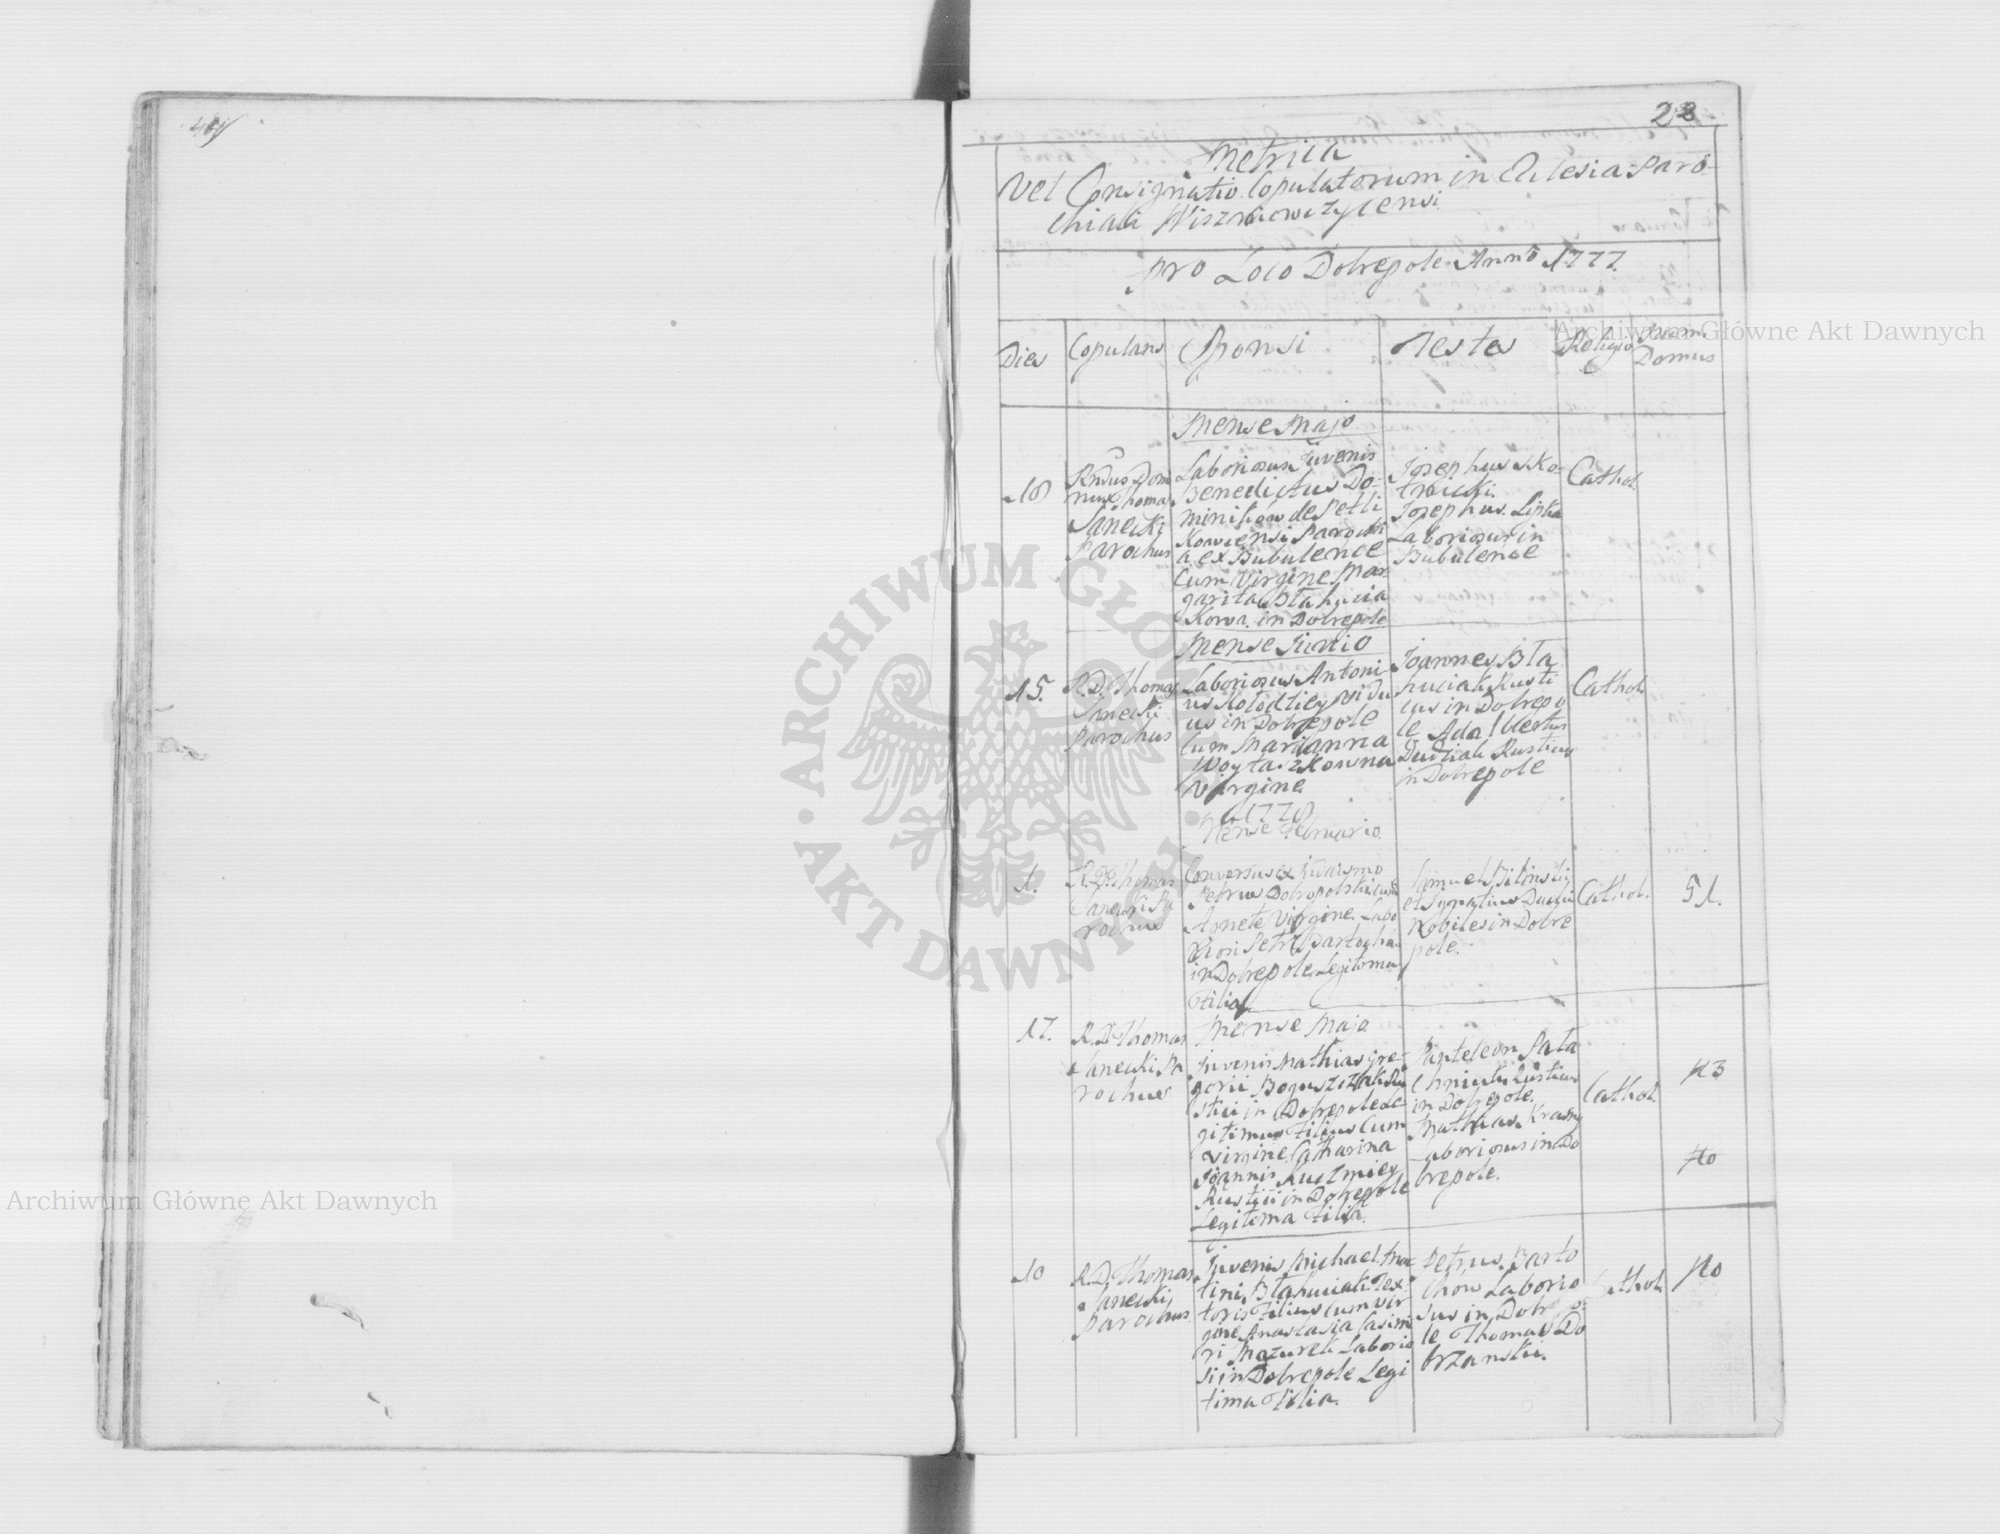 28
Metrica
Vel Consignatio Copulatorum in Eclesia Paro-
chiali Wiszniowczycensi
pro Loco Dobrepole Anno 1777.
Dies
Copulans
Sponsi
Testes
Religio
Num.
Domus
Mense Majo
18
Rndus Domi
nus Thomas
Janecki
Parochus
Laboriosus Juvenis
Benedictus Do-
minikow de Petli
Kowcensi Parochi
a ex Bubulence
Cum Virgine Mar-
garita Błahucia
Kowa in Dobrepole
Josephus Ko-
Josephus Lipka
Laboriosus in
Bubulence
Cathol.
Mense Junio
15.
R. D. Thomas
Janecki
Parochus
Laboriosus Antoni
us Kołodziey Vidu
us in Dobrepole
Cum Marianna
Woytaszkowna
Virgine
Joannes Bła
huciak Rusti
cus in Dobrepo
le Adalbertus
Rusticus
in Dobrepole
Cathol.
1778
Mense Februario.
1.
R. D. Thomas
Janecki Pa
rochus
Conversus ex Judaismo
Petrus Dobropolski cum
Agnete Virgine Labo
riosi Petri
in Dobrepole Legitima
Filia
Samuel
et Ignatius
Nobiles in Dobre
pole.
Cathol.
51.
17.
R. D. Thomas
Janecki Pa
rochus
Mense Majo
Juvenis Mathias Gre-
gorii Boguszczak Ru
stici in Dobrepole Le
gitimus Filius Cum
Virgine Catharina
Joannis Kuzmiey
Rustici in Dobrepole
Legitima Filia.
Panteleon Pała
Rusticus
in Dobrepole.
Mathias Krasny
Laboriosus in Do
brepole.
Cathol.
10
R. D. Thomas
Janecki
Parochus
Juvenis Michael Mar
tini Błahuciak Tex-
toris Filius cum Vir
gine Anastasia Casimi
ri Mazurek Laborio
si in Dobrepole Legi
tima Filia.
Petrus Barto
chow Laborio
sus in Dobrepo-
le Thomas Do
brzanski.
Cathol.
Archiwum Główne Akt Dawnych
Archiwum Główne Akt Dawnych
ARCHIWUM GŁÓWNE AKT DAWNYCH